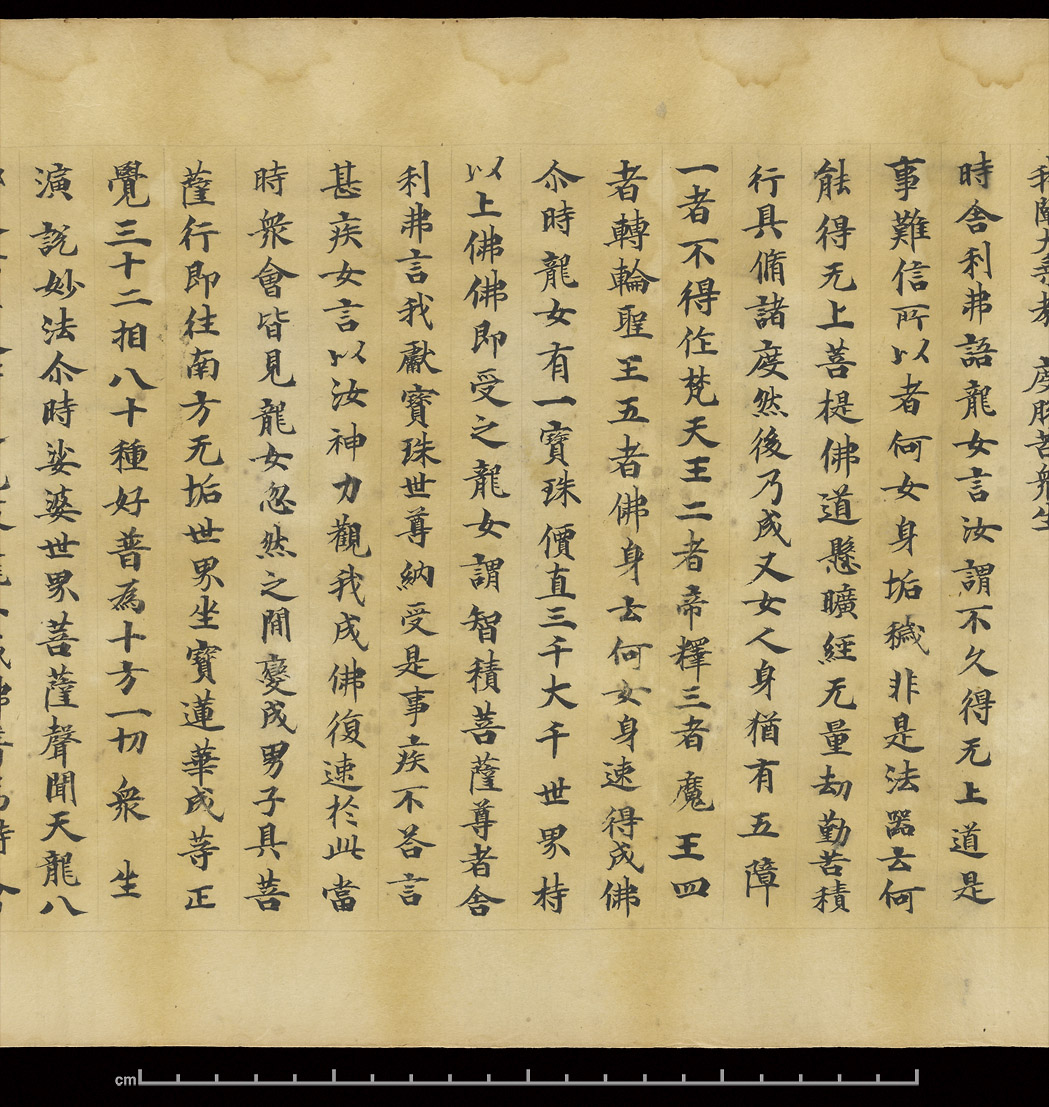 我闡大乘教　度脫苦衆生
時舍利弗語龍女言汝謂不久得无上道是
事難信所以者何女身垢穢非是法器云何
能得无上菩提佛道懸曠經无量劫勤苦積
行具脩諸度然後乃成又女人身猶有五障
一者不得作梵天王二者帝釋三者魔王四
者轉輪聖王五者佛身云何女身速得成佛
尒時龍女有一寶珠價直三千大千世界持
以上佛佛即受之龍女謂智積菩薩尊者舍
利弗言我獻寶珠世尊納受是事疾不荅言
甚疾女言以汝神力觀我成佛復速於此當
時衆會皆見龍女忽然之閒變成男子具菩
薩行即往南方无垢世界坐寶蓮華成等正
覺三十二相八十種好普為十方一切衆生
演說妙法尒時娑婆世界菩薩聲聞天龍八